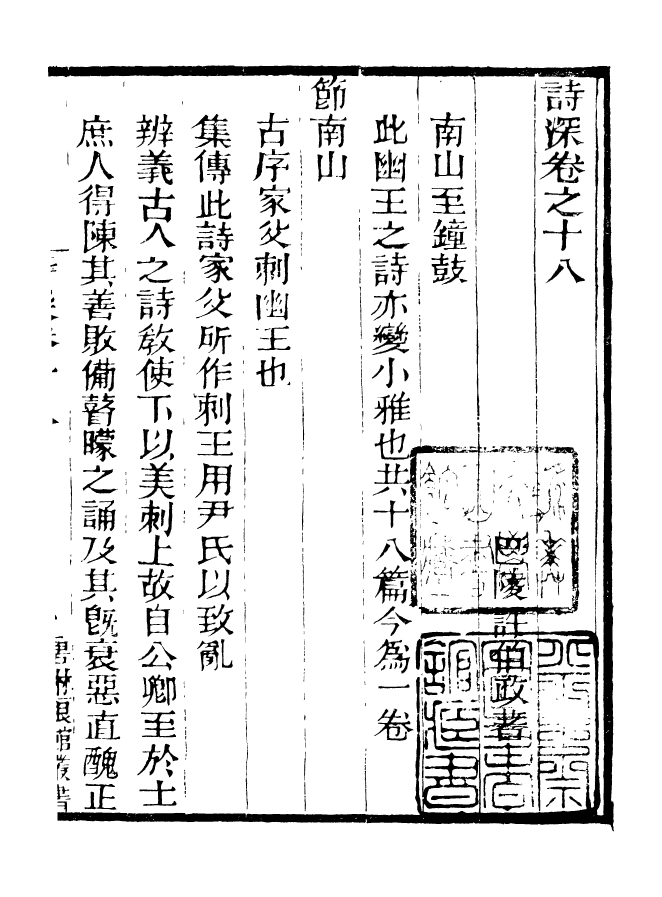 詩深卷之十八
巴陵許伯政著
南山至鐘鼓
此幽王之詩亦變小雅也共十八篇今爲一卷
節南山
古序家父刺幽王也
集傳此詩家父所作刺王用尹氏以致亂
辨義古人之詩敎使下以美刺上故自公卿至於士
庶人得陳其善敗備瞽矇之誦及其旣衰惡直醜正